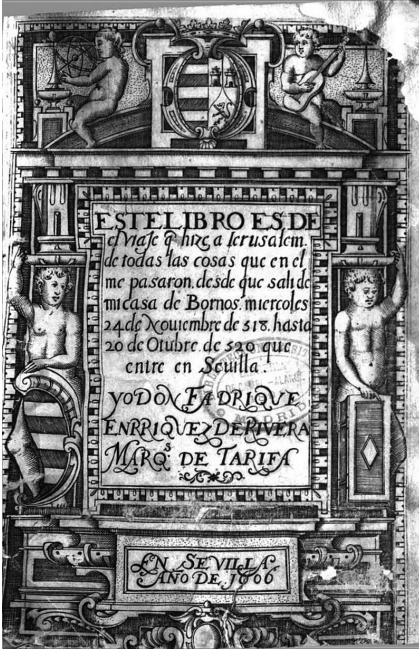 ESTE LIBRO ES DE
el viaje q̃ hize a Ierusalem.
de todas las cosas que en el
me pasaron. desde que sali de
mi casa de Bornos. miercoles
24 de Nouiembre de 518. hasta
20 de Otubre. de 520 que
entre en Seuilla.
YO DON FADRIQVE
ENRRIQVEZ DE RIVERA
MARQ.S DE TARIFA
EN SEVILLA
AÑO DE 1606
MADRID